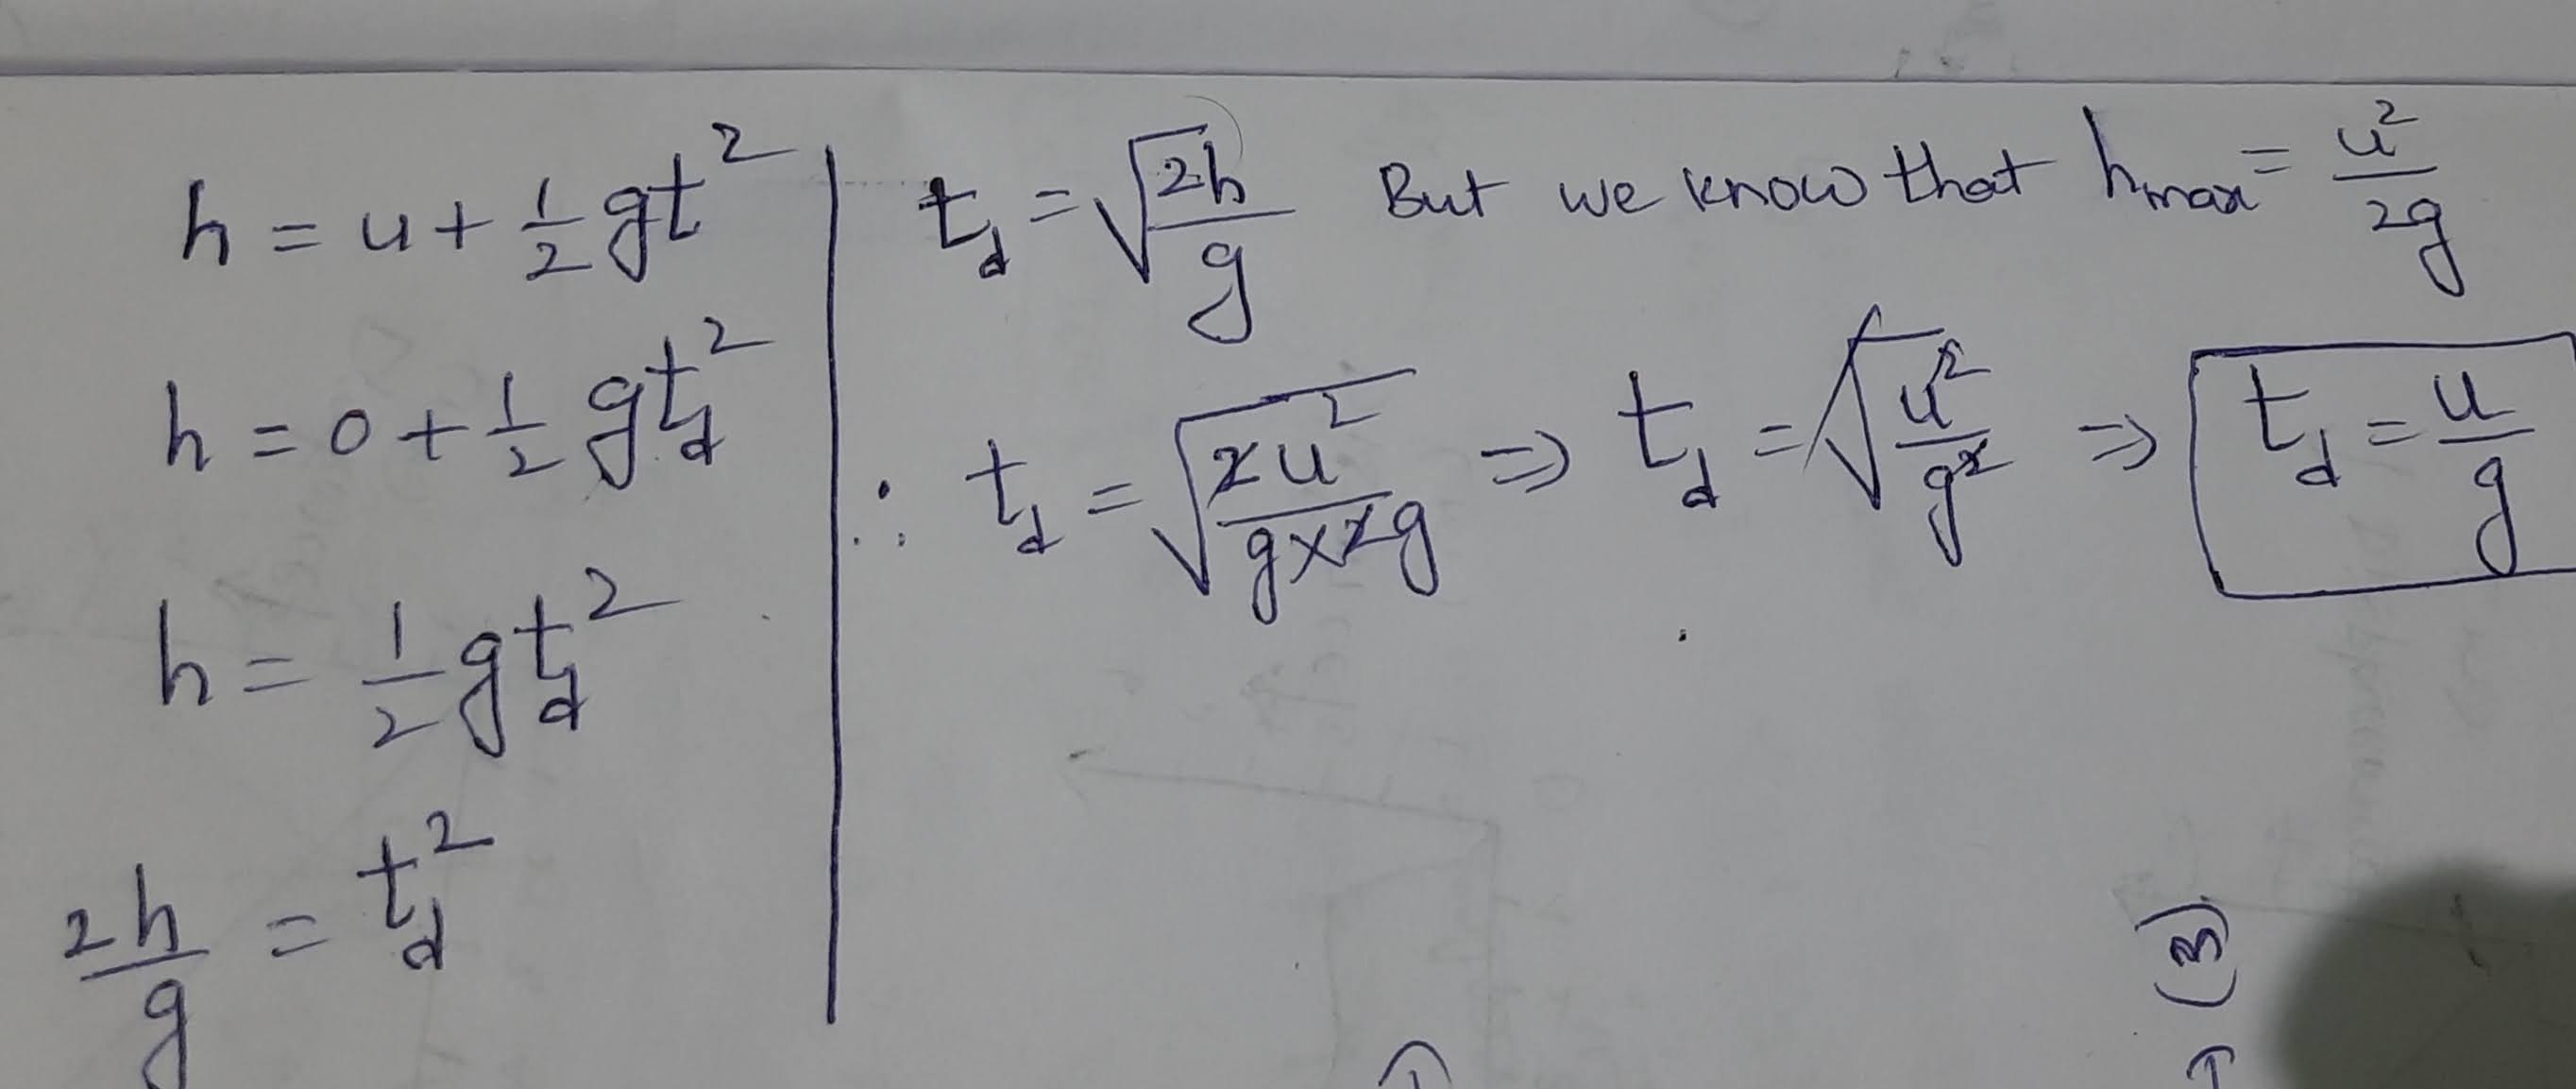 h = u + 1/2 gt²
h = 0 + 1/2 gt_d²
h = 1/2 gt_d²
2h/g = t_d²
t_d = √(2h/g) But we know that h_max = u²/2g
∴ t_d = √(2u²/(g×2g)) ⇒ t_d = √(u²/g²) ⇒ t_d = u/g
(3)